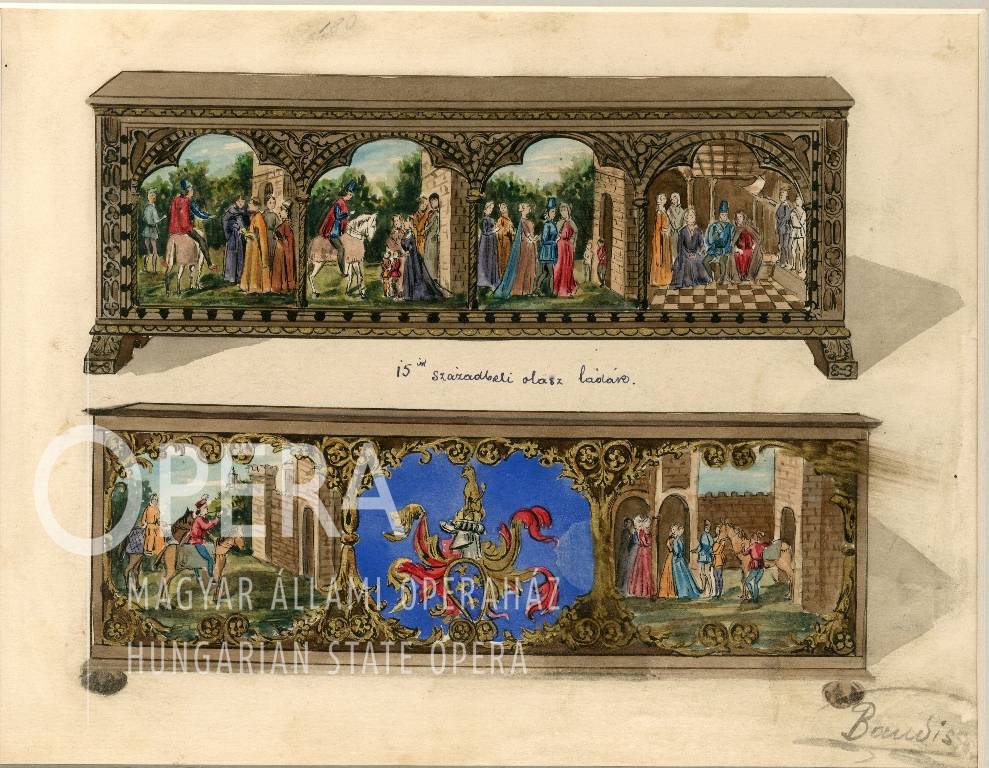 180
15ik századbeli olasz ládák.
OPERA
MAGYAR ÁLLAMI OPERAHÁZ
HUNGARIAN STATE OPERA
Baudis